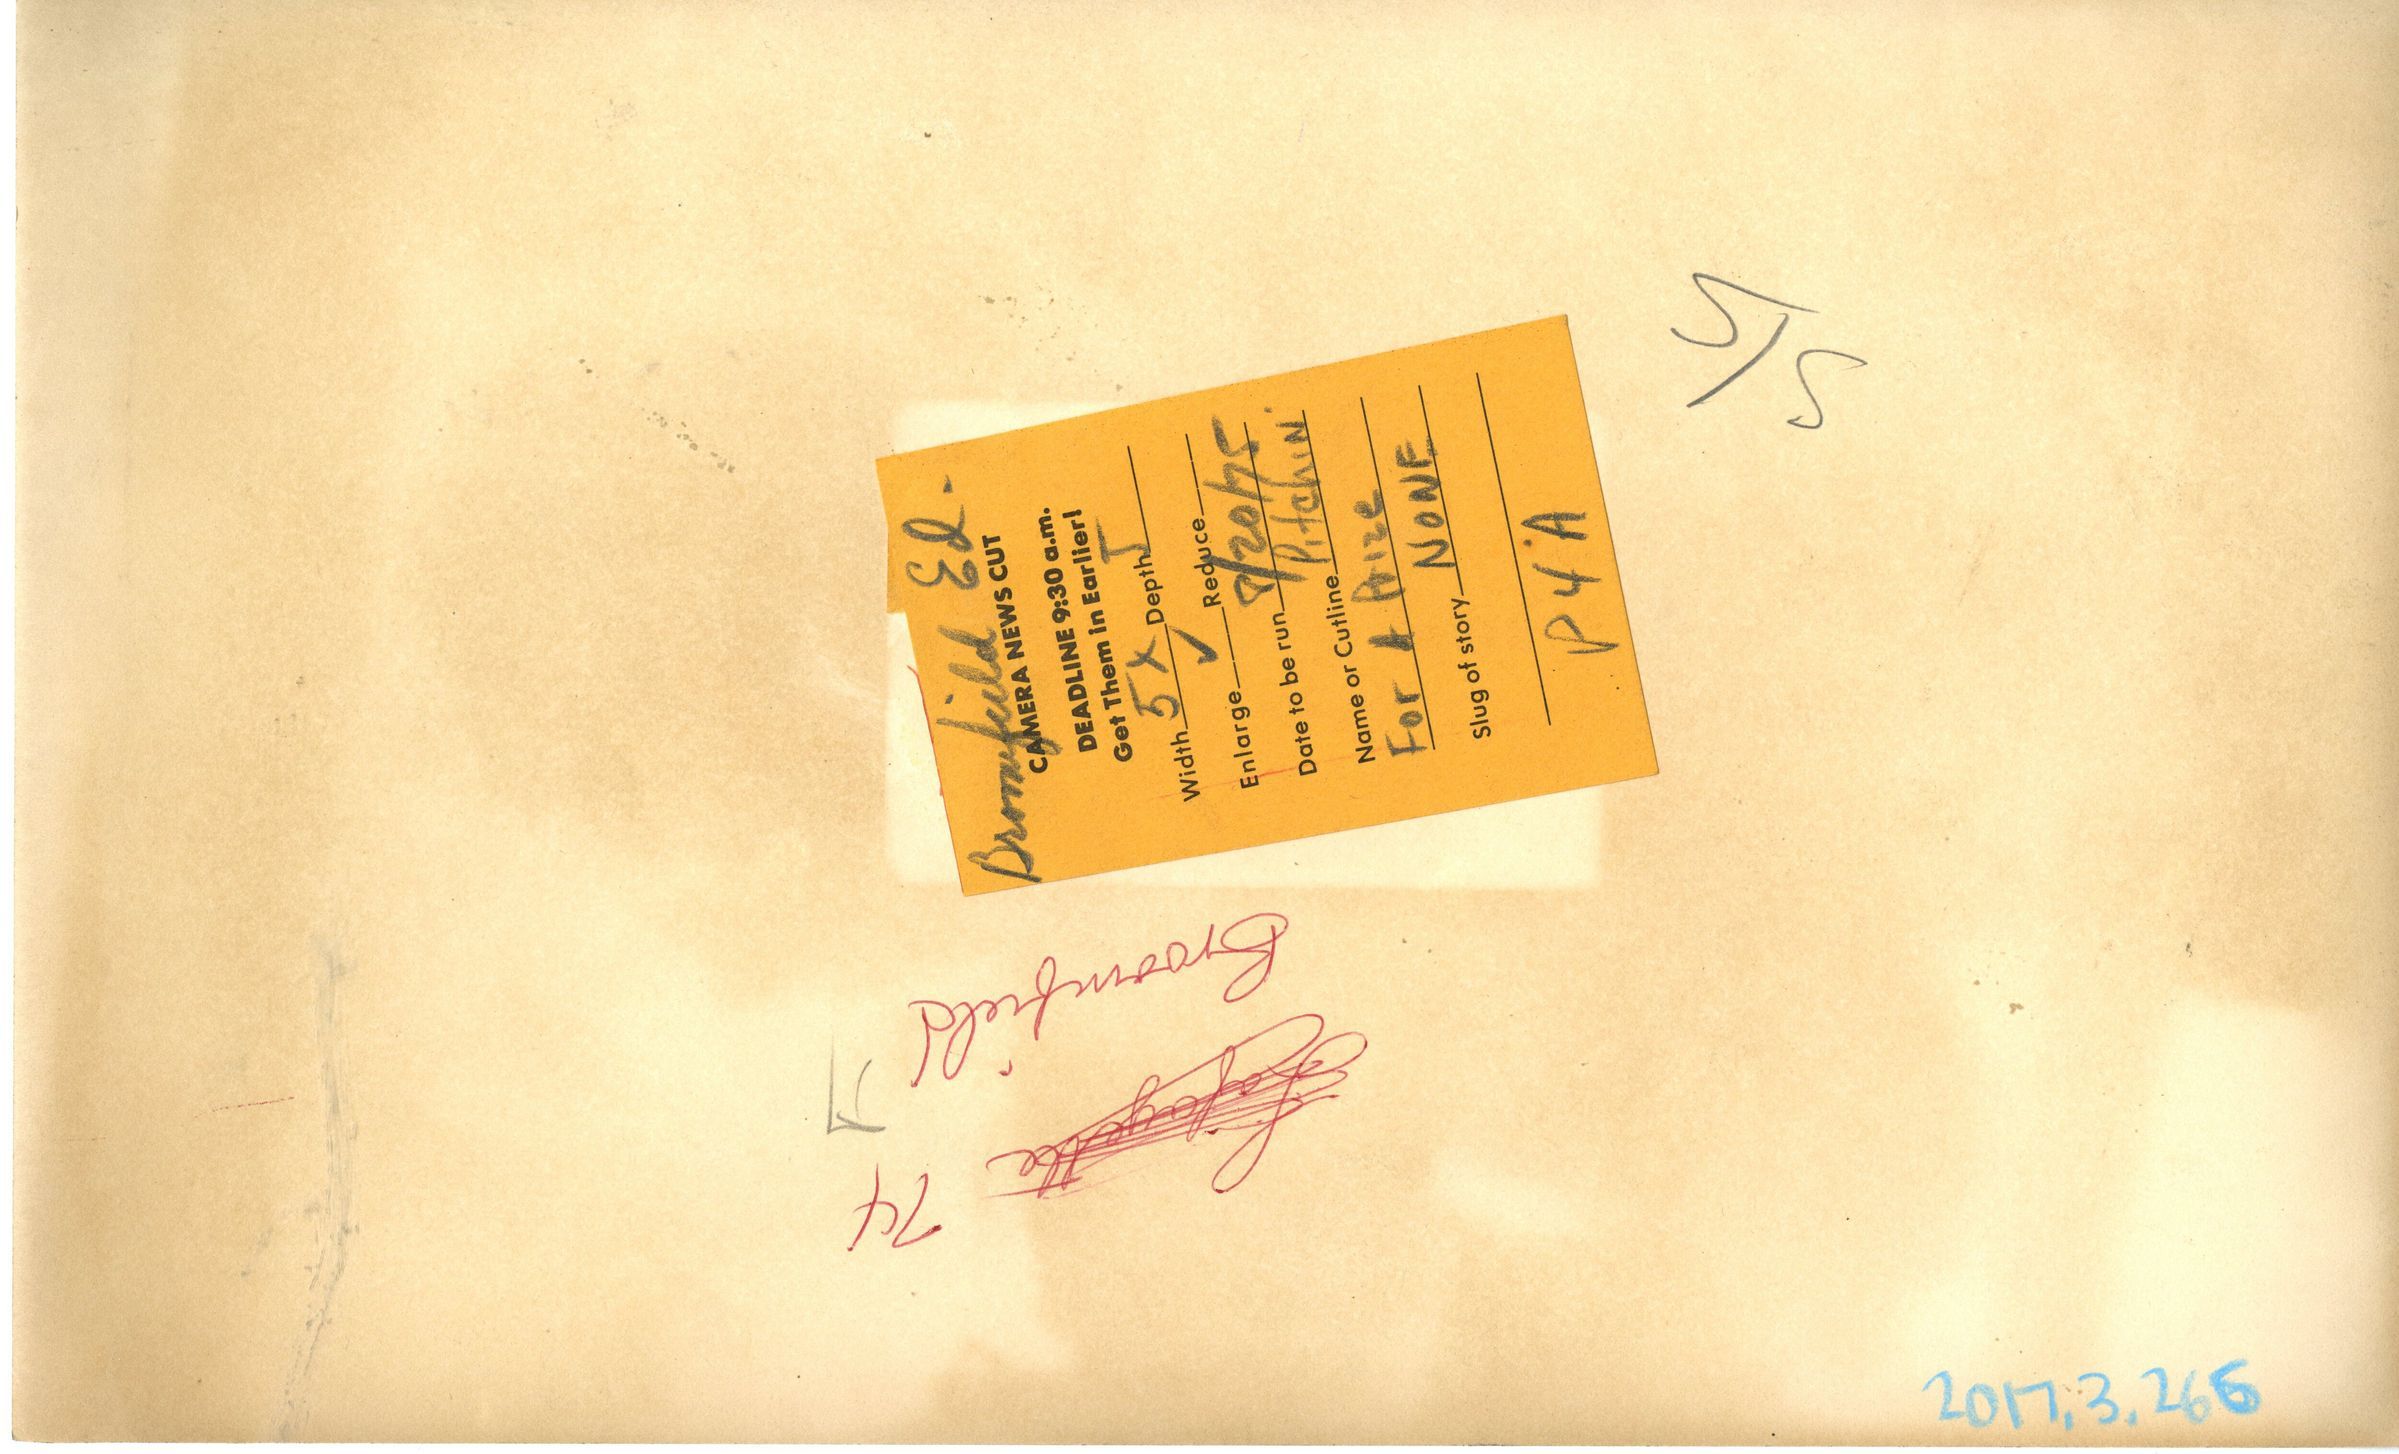 Broomfield Ed.
CAMERA NEWS CUT
DEADLINE 9:30 a.m.
Get Them in Earlier!
Width 5 x Depth 5
Enlarge ✓ Reduce
Date to be run 8/20/75
Name or Cutline Pitchin'
For A Prize
Slug of story NONE
P 4'A
5/5
Broomfield
Lafayette
74
2017.3.266